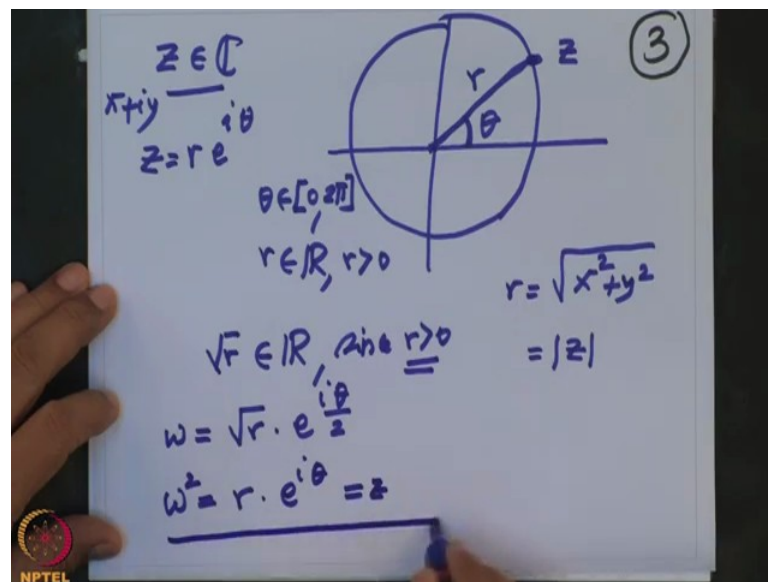 z ∈ ℂ
x+iy
z = r e^{iθ}
θ ∈ [0, 2π]
r ∈ ℝ, r>0
r
θ
z
3
r = √(x²+y²)
= |z|
√r ∈ ℝ, since r>0
w = √r · e^{iθ/2}
w² = r · e^{iθ} = z
NPTEL